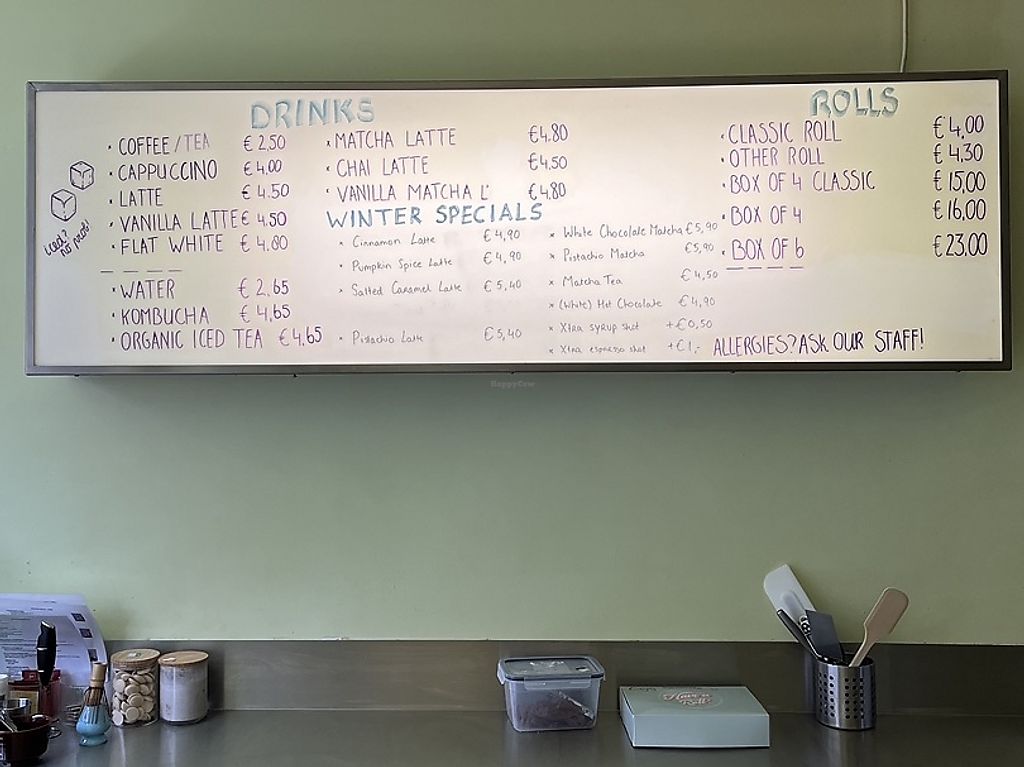 DRINKS
· COFFEE/TEA €2,50
· CAPPUCCINO €4,00
· LATTE €4.50
· VANILLA LATTE €4,50
· FLAT WHITE €4,00
Iced?
no prob!
· WATER €2,65
· KOMBUCHA €4,65
· ORGANIC ICED TEA €4.65
· MATCHA LATTE €4.80
· CHAI LATTE €4,50
· VANILLA MATCHA L' €4,80
WINTER SPECIALS
× Cinnamon Latte €4,90
× Pumpkin Spice Latte €4,90
× Salted Caramel Latte €5,40
× Pistachio Latte €5,40
× White Chocolate Matcha €5,90
× Pistachio Matcha €5,90
× Matcha Tea €4,50
× (White) Hot Chocolate €4,90
× Xtra syrup shot +€0,50
× Xtra espresso shot +€1,-
ROLLS
· CLASSIC ROLL €4,00
· OTHER ROLL €4,30
· BOX OF 4 CLASSIC €15,00
· BOX OF 4 €16,00
· BOX OF 6 €23,00
ALLERGIES? ASK OUR STAFF!
HappyCow